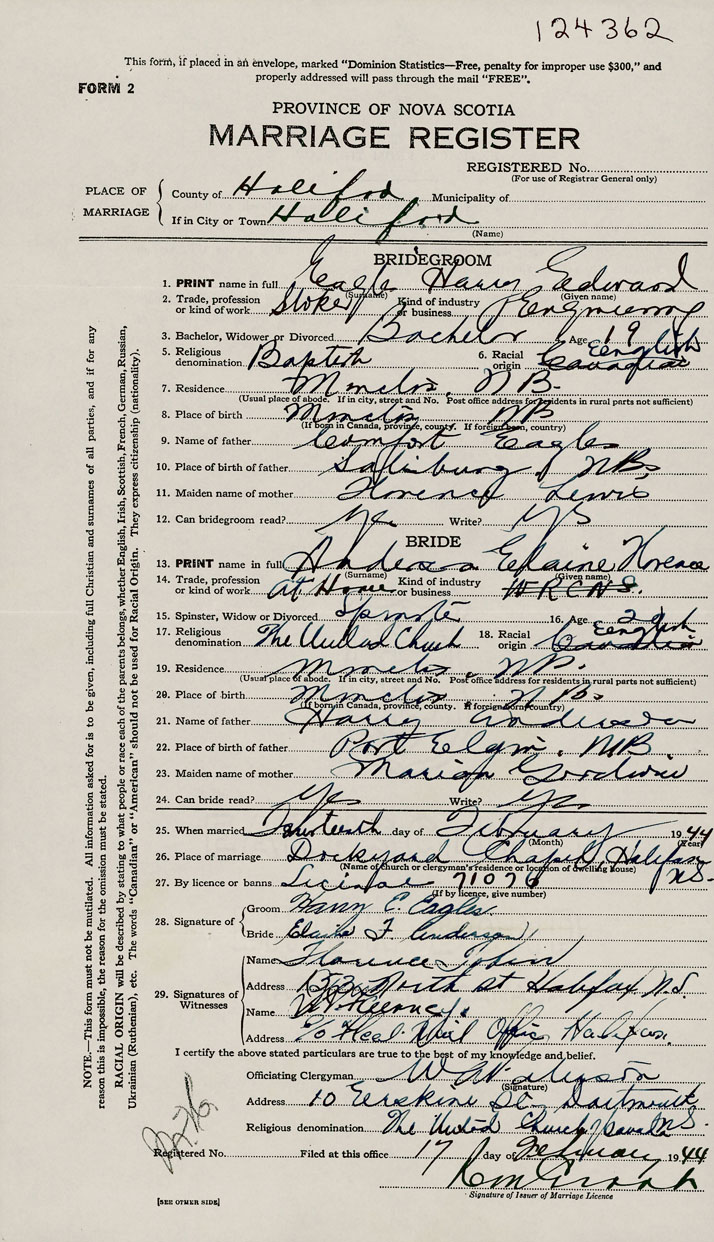 124362
This form, if placed in an envelope, marked "Dominion Statistics—Free, penalty for improper use $300," and
properly addressed will pass through the mail "FREE".
FORM 2
PROVINCE OF NOVA SCOTIA
MARRIAGE REGISTER
REGISTERED No.
(For use of Registrar General only)
PLACE OF MARRIAGE
County of Halifax Municipality of
If in City or Town Halifax
(Name)
BRIDEGROOM
1. PRINT name in full Eagle Harry Edward
(Surname) (Given name)
2. Trade, profession or kind of work Stoker Kind of industry or business Engineering
3. Bachelor, Widower or Divorced Bachelor Age 19
5. Religious denomination Baptist 6. Racial origin English Canadian
7. Residence Moncton, N.B.
(Usual place of abode. If in city, street and No. Post office address for residents in rural parts not sufficient)
8. Place of birth Moncton NB
(If born in Canada, province, county. If foreign born, country)
9. Name of father Comfort Eagles
10. Place of birth of father Salisbury, NB
11. Maiden name of mother Florence Lewis
12. Can bridegroom read? Yes Write? Yes
BRIDE
13. PRINT name in full Anderson Elaine Florence
(Surname) (Given name)
14. Trade, profession or kind of work at Home Kind of industry or business W.R.C.N.S.
15. Spinster, Widow or Divorced Spinster 16. Age
17. Religious denomination The United Church 18. Racial origin English Canadian
19. Residence Moncton, NB.
(Usual place of abode. If in city, street and No. Post office address for residents in rural parts not sufficient)
20. Place of birth Moncton NB
(If born in Canada, province, county. If foreign born, country)
21. Name of father Harry Anderson
22. Place of birth of father Port Elgin, NB
23. Maiden name of mother Marion Goodwin
24. Can bride read? Yes Write? Yes
25. When married day of February 1944
(Month) (Year)
26. Place of marriage Dockyard Chapel, Halifax N.S.
(Name of church or clergyman's residence or location of dwelling house)
27. By licence or banns License 71076
(If by licence, give number)
28. Signature of
Groom Harry E. Eagles.
Bride Elaine F. Anderson
29. Signatures of Witnesses
Name Florence
Address North St Halifax N.S.
Name
Address c/o Fleet Mail Office, Halifax.
I certify the above stated particulars are true to the best of my knowledge and belief.
Officiating Clergyman
(Signature)
Address 10 Erskine St. Dartmouth N.S.
Religious denomination The United Church of Canada
Registered No. Filed at this office 17 day of February 1944
Signature of Issuer of Marriage Licence
[SEE OTHER SIDE]
NOTE.—This form must not be mutilated. All information asked for is to be given, including full Christian and surnames of all parties, and if for any
reason this is impossible, the reason for the omission must be stated.
RACIAL ORIGIN will be described by stating to what people or race each of the parents belongs, whether English, Irish, Scottish, French, German, Russian,
Ukrainian (Ruthenian), etc. The words "Canadian" or "American" should not be used for Racial Origin. They express citizenship (nationality).